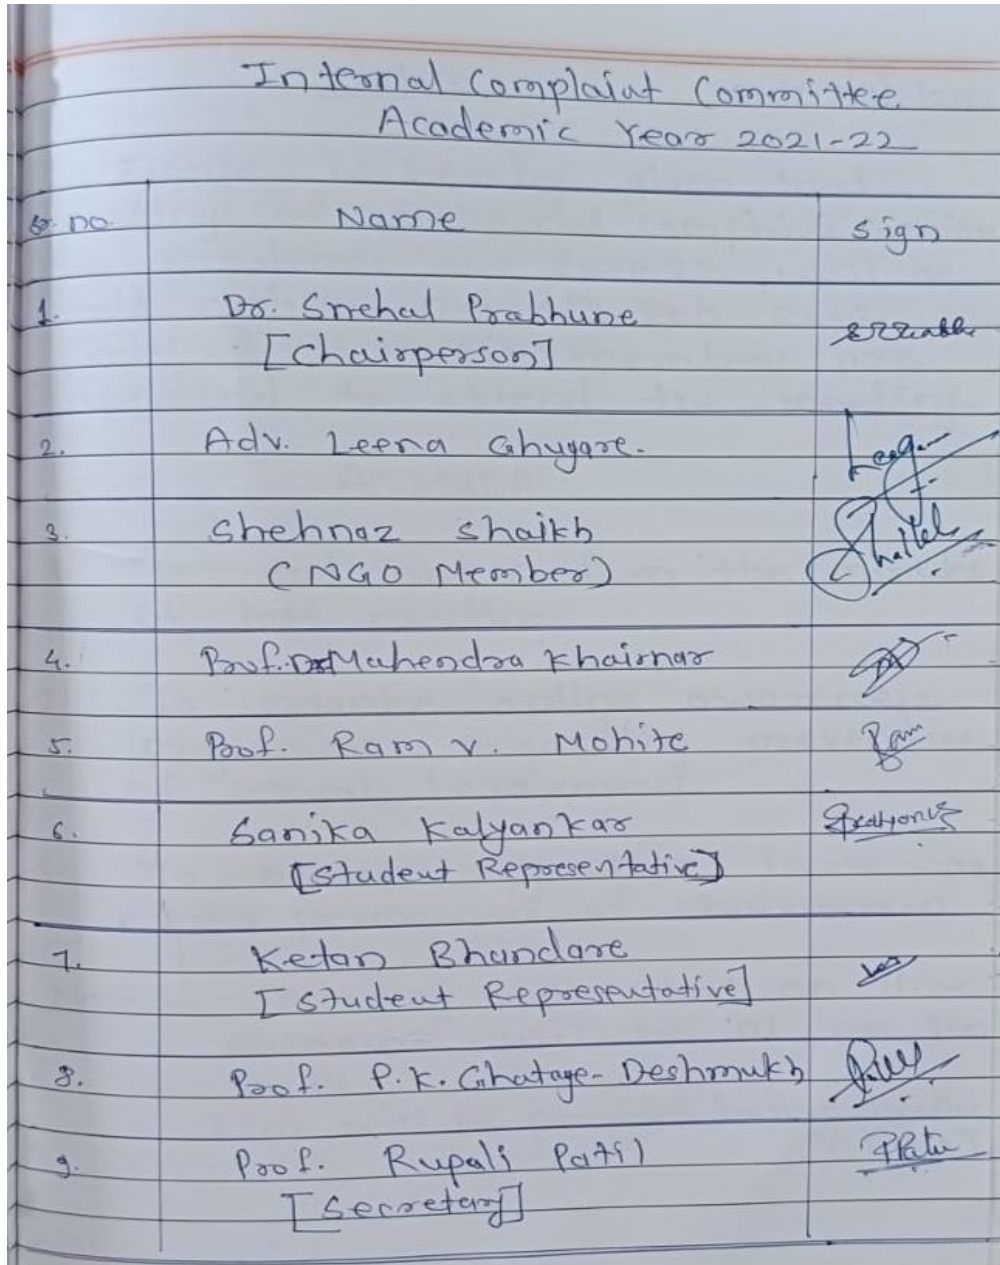 Internal Complaint Committee
Academic Year 2021-22
Sr. no. Name sign
1. Dr. Snehal Prabhune
[Chairperson]
2. Adv. Leena Ghugare.
3. Shehnaz Shaikh
(NGO Member)
Shaikh
4. Prof. Mahendra Khairnar
5. Prof. Ram V. Mohite Ram
6. Sanika Kalyankar
[Student Representative]
7. Ketan Bhandare
[Student Representative]
8. Prof. P.K. Ghatage-Deshmukh
9. Prof. Rupali Patil
[Secretary]